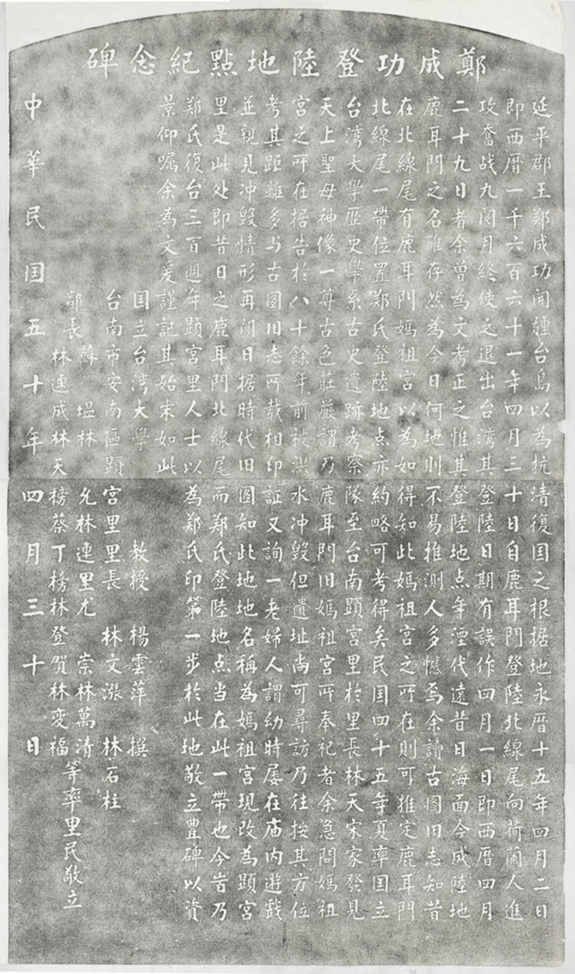 鄭成功登陸地點紀念碑
延平郡王郑成功開疆台島以為抗清復国之根据地永曆十五年四月二日
即西曆一千六百六十一年四月三十日自鹿耳門登陸北線尾向荷蘭人進
攻奮战九閱月終使之退出台湾其登陸日期有誤作四月一日即西曆四月
二十九日者余曾為文考正之惟其登陸地点年湮代遠昔日海面今成陸地
鹿耳門之名雖存然為今日何地則不易推測人多憾焉余讀古图旧志知昔
在北線尾有鹿耳門媽祖宮以為如得知此媽祖宮之所在則可推定鹿耳門
北線尾一帶位置郑氏登陸地点亦約略可考得矣民国四十五年夏率国立
台湾大學歷史學系古史遺跡考察隊至台南顕宮里於里長林天宋家發見
天上聖母神像一尊古色莊嚴謂乃鹿耳門旧媽祖宮所奉祀者余急問媽祖
宮之所在据告於八十餘年前被洪水冲毀但遺址尚可尋訪乃往按其方位
考其距離多与古图旧志所載相印証又詢一老婦人謂幼時屡在庙内遊戱
並親見冲毀情形再閱日据時代旧图知此地地名称為媽祖宮現改為顕宮
里是此处即昔日之鹿耳門北線尾而郑氏登陸地点当在此一帶也今岁乃
郑氏復台三百週年顕宮里人士以為郑氏印第一步於此地敬立豊碑以資
景仰嘱余為文爰謹記其始末如此
国立台湾大學教授 楊雲萍 撰
台南市安南區顕宮里里長 林文漲 林石柱
鄰長 蘇塭林允林連里尤崇林萬清
林連成林天榜蔡丁榜林登賀林变福等率里民敬立
中華民国五十年四月三十日